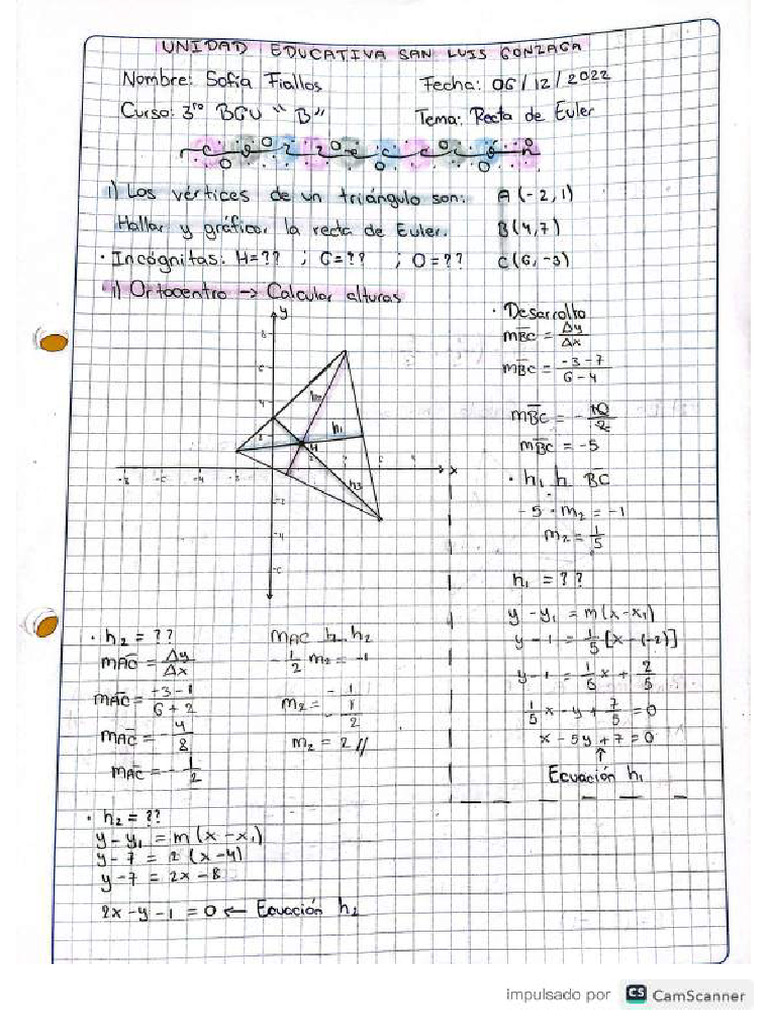 UNIDAD EDUCATIVA SAN LUIS GONZAGA
Nombre: Sofía Fiallos
Fecha: 06/12/2022
Curso: 3ro BGU "B"
Tema: Recta de Euler
1) Los vértices de un triángulo son: A(-2,1)
Hallar y gráficar la recta de Euler. B(4,7)
• Incógnitas: H=?? ; G=?? ; O=?? C(6,-3)
1) Ortocentro → Calcular alturas
y
x
h2
h1
H
h3
• Desarrollo
mBC = Δy/Δx
mBC = -3-7/6-4
mBC = -10/2
mBC = -5
• h1 h BC
-5 · m2 = -1
m2 = 1/5
h1 = ??
y - y1 = m(x-x1)
y - 1 = 1/5 [x-(-2)]
y - 1 = 1/5 x + 2/5
1/5 x - y + 7/5 = 0
x - 5y + 7 = 0
↑
Ecuación h1
• h2 = ??
mAC = Δy/Δx
mAC = -3-1/6+2
mAC = -4/8
mAC = -1/2
MAC h h2
-1/2 m2 = -1
m2 = -1/-1/2
m2 = 2 //
• h2 = ??
y - y1 = m(x-x1)
y - 7 = 2 (x-4)
y - 7 = 2x - 8
2x - y - 1 = 0 ← Ecuación h2
impulsado por CS CamScanner